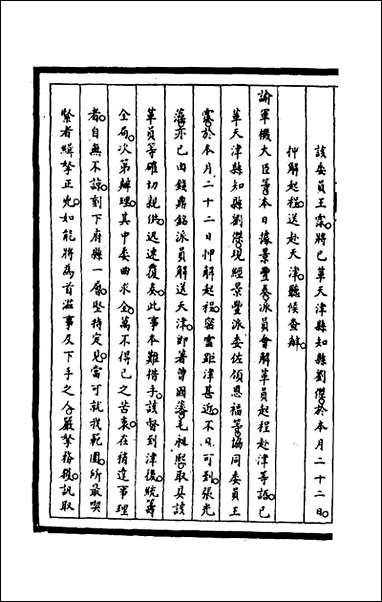 該委員王霈將已革天津縣知縣劉傑於本月二十二日
押解起程送赴天津聽候查辦
諭軍機大臣等本日據景豐奏派員會解革員起程赴津等語已
革天津縣知縣劉傑現經景豐派委佐領恩福等協同委員王
霈於本月二十二日押解起程密雲距津甚近不日可到張光
藻亦已由錢鼎銘派員解送天津即著曾國藩毛昶熙取具該
革員等確切親供迅速覆奏此事本難措手該督到津後統籌
全局次第辦理其中委曲求全萬不得已之苦衷在稍達事理
者自無不諒刻下府縣一層堅持定見當可就我範圍所最喫
緊者緝拏正兇如能將為首滋事及下手之人嚴拏務獲訊取